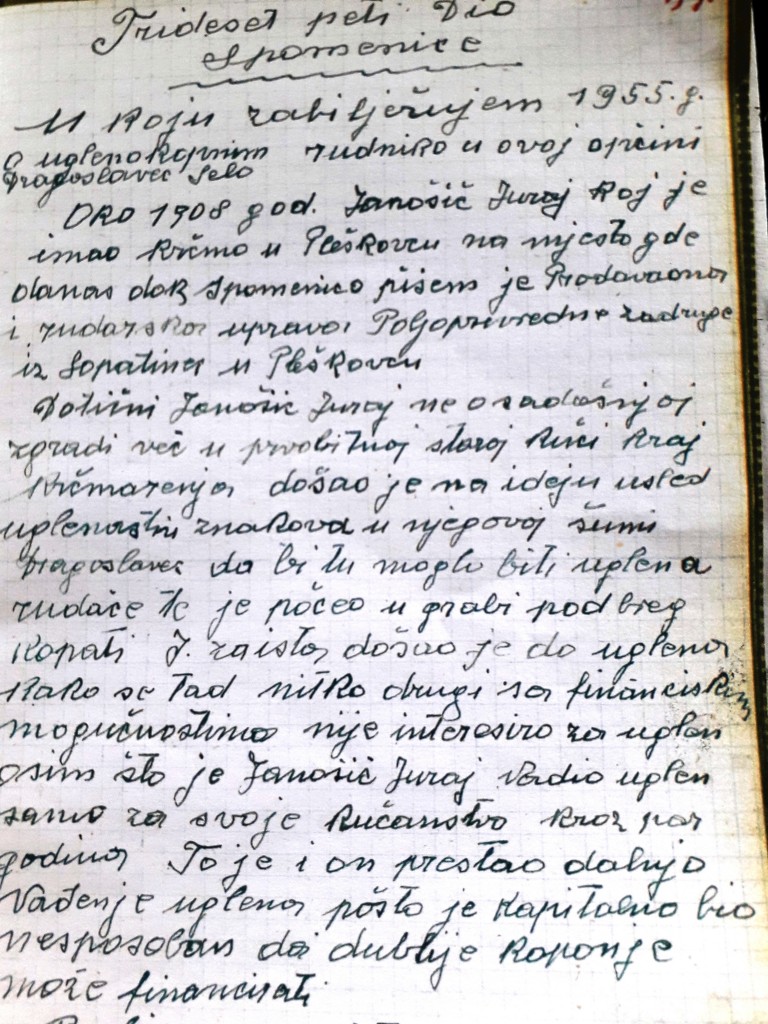 Trideset peti Dio
Spomenice
U Koju zabilježujem 1955.g.
o uglenokopnim rudniko u ovoj općini
Dragoslavec Selo
Oko 1908 god. Janošić Juraj Koj je
imao Krčmo u Pleškovcu na mjesto gde
danas dok Spomenico pišem je Prodavaona
i rudarska uprava Poljoprivredne zadruge
iz Lopatina u Pleškovcu
Dotični Janošić Juraj ne o sadašnjoj
zgradi već u prvobitnoj staroj Kući Kraj
Krčmarenja došao je na ideju usled
uglenastni znakova u njegovoj šumi
Dragoslavec da bi tu moglo biti uglena
rudače te je počeo u grabi pod breg
Kopati J. zaista došao je do uglena
Kako se tad nitko drugi sa financiskim
mogučnostima nije interesiro za uglen
osim što je Janošić Juraj Vadio uglen
samo za svoje Kučanstvo Kroz par
godina To je i on prestao daljo
Vađenje uglena pošto je Kapitalno bio
nesposoban da dublje Kopanje
može financirati